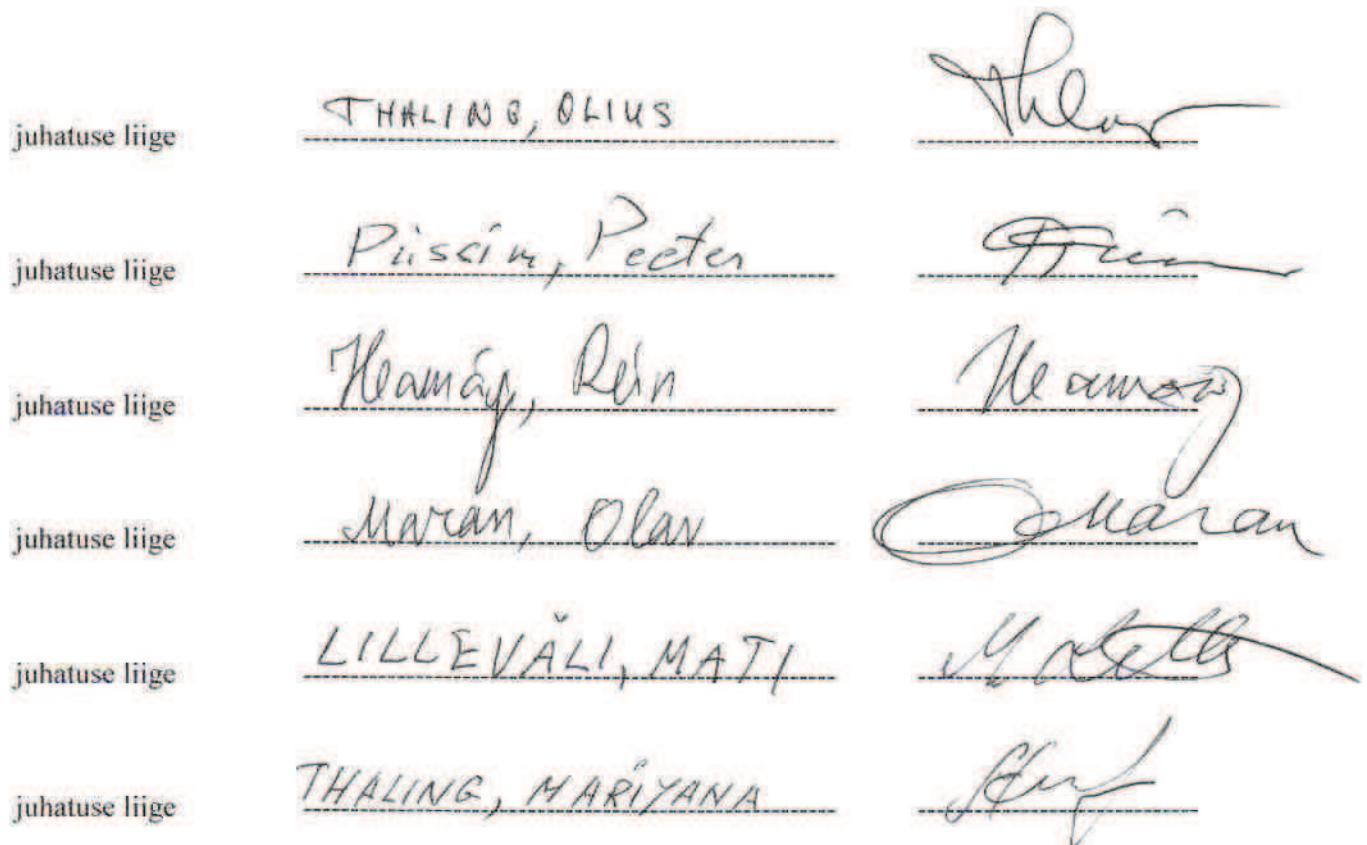 juhatuse liige THALING, OLIUS
juhatuse liige Piissim, Peeter
juhatuse liige Heamäg, Rein
juhatuse liige Maran, Olav Maran
juhatuse liige LILLEVÄLI, MATI
juhatuse liige THALING, MARIYANA